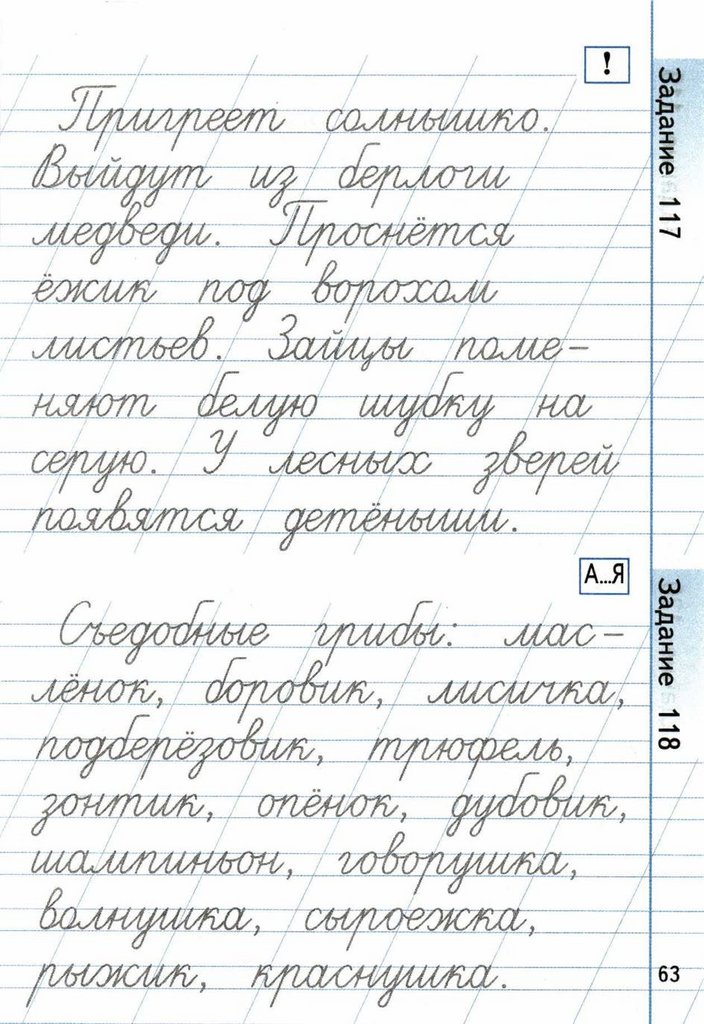 !
Задание 117
Пригреет солнышко.
Выйдут из берлоги
медведи. Проснётся
ёжик под ворохом
листьев. Зайцы поме-
няют белую шубку на
серую. У лесных зверей
появятся детёныши.
А...Я
Задание 118
Съедобные грибы: мас-
лёнок, боровик, лисичка,
подберёзовик, трюфель,
зонтик, опёнок, дубовик,
шампиньон, говорушка,
волнушка, сыроежка,
рыжик, краснушка.
63